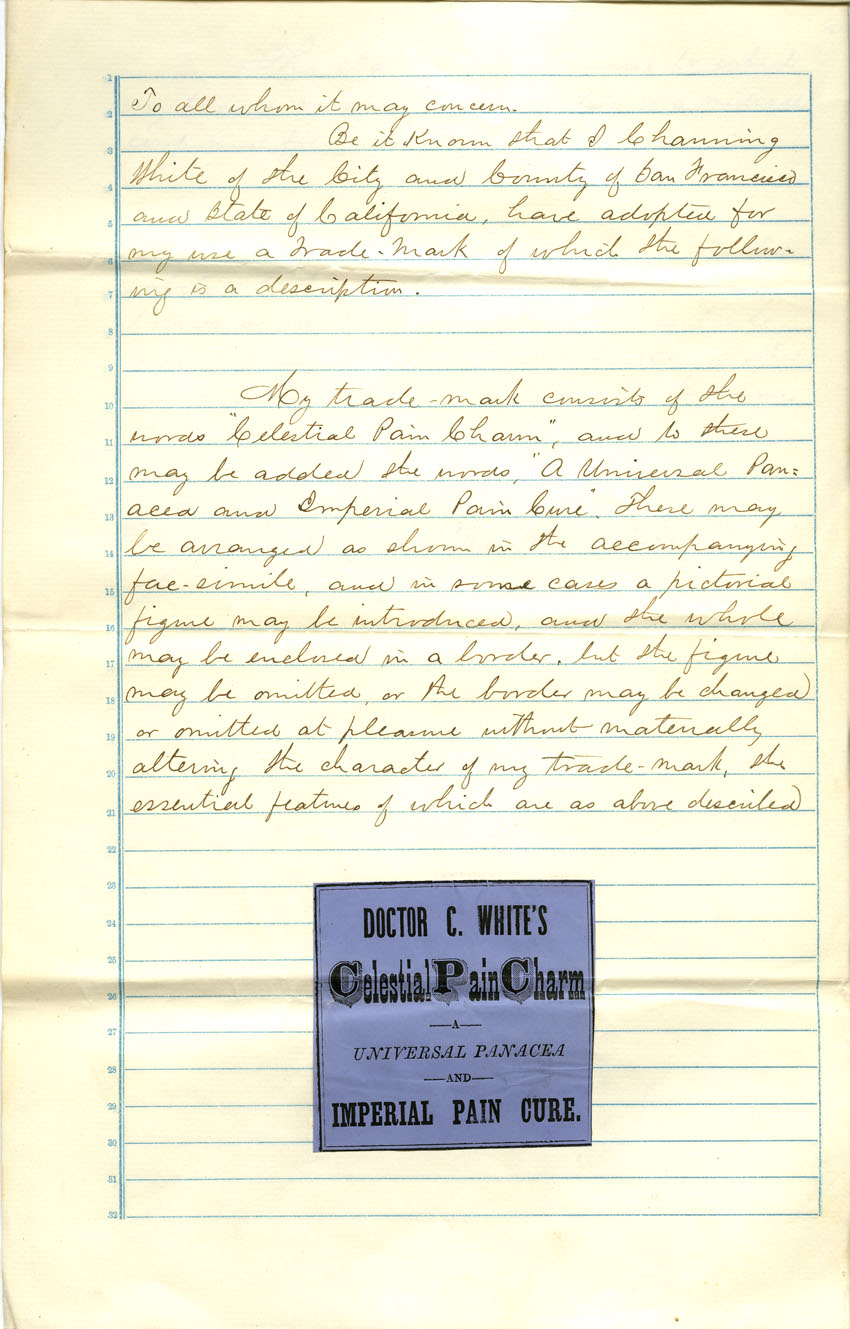 To all whom it may concern.
Be it Known that I Channing
White of the City and County of San Francisco
and State of California, have adopted for
my use a Trade-Mark of which the follow-
ing is a description.
My trade-mark consists of the
words "Celestial Pain Charm", and to these
may be added the words, "A Universal Pan=
acea and Imperial Pain Cure". These may
be arranged as shown in the accompanying
fac-simile, and in some cases a pictorial
figure may be introduced, and the whole
may be enclosed in a border, but the figure
may be omitted, or the border may be changed
or omitted at pleasure without materially
altering the character of my trade-mark, the
essential features of which are as above described
DOCTOR C. WHITE'S
Celestial Pain Charm
—A—
UNIVERSAL PANACEA
—AND—
IMPERIAL PAIN CURE.
1
2
3
4
5
6
7
8
9
10
11
12
13
14
15
16
17
18
19
20
21
22
23
24
25
26
27
28
29
30
31
32